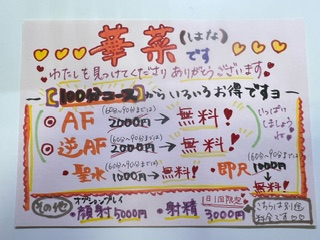 華菜(はな)です
わたしを見つけてくださり ありがとうございます
【100分コース】からいろいろお得ですヨー
いっぱいしましょうね
(60分〜90分までは)
◎AF 2000円→無料!
(60分〜90分までは)
◎逆AF 2000円→無料!
(60分〜90分までは)
・聖水 1000円→無料!
・即尺
(60分〜90分までは)
1000円
↓
無料!
その他
オプションプレイ
・顔射 5000円
・射精 3000円
1日1回限定
こちらは別途
料金です